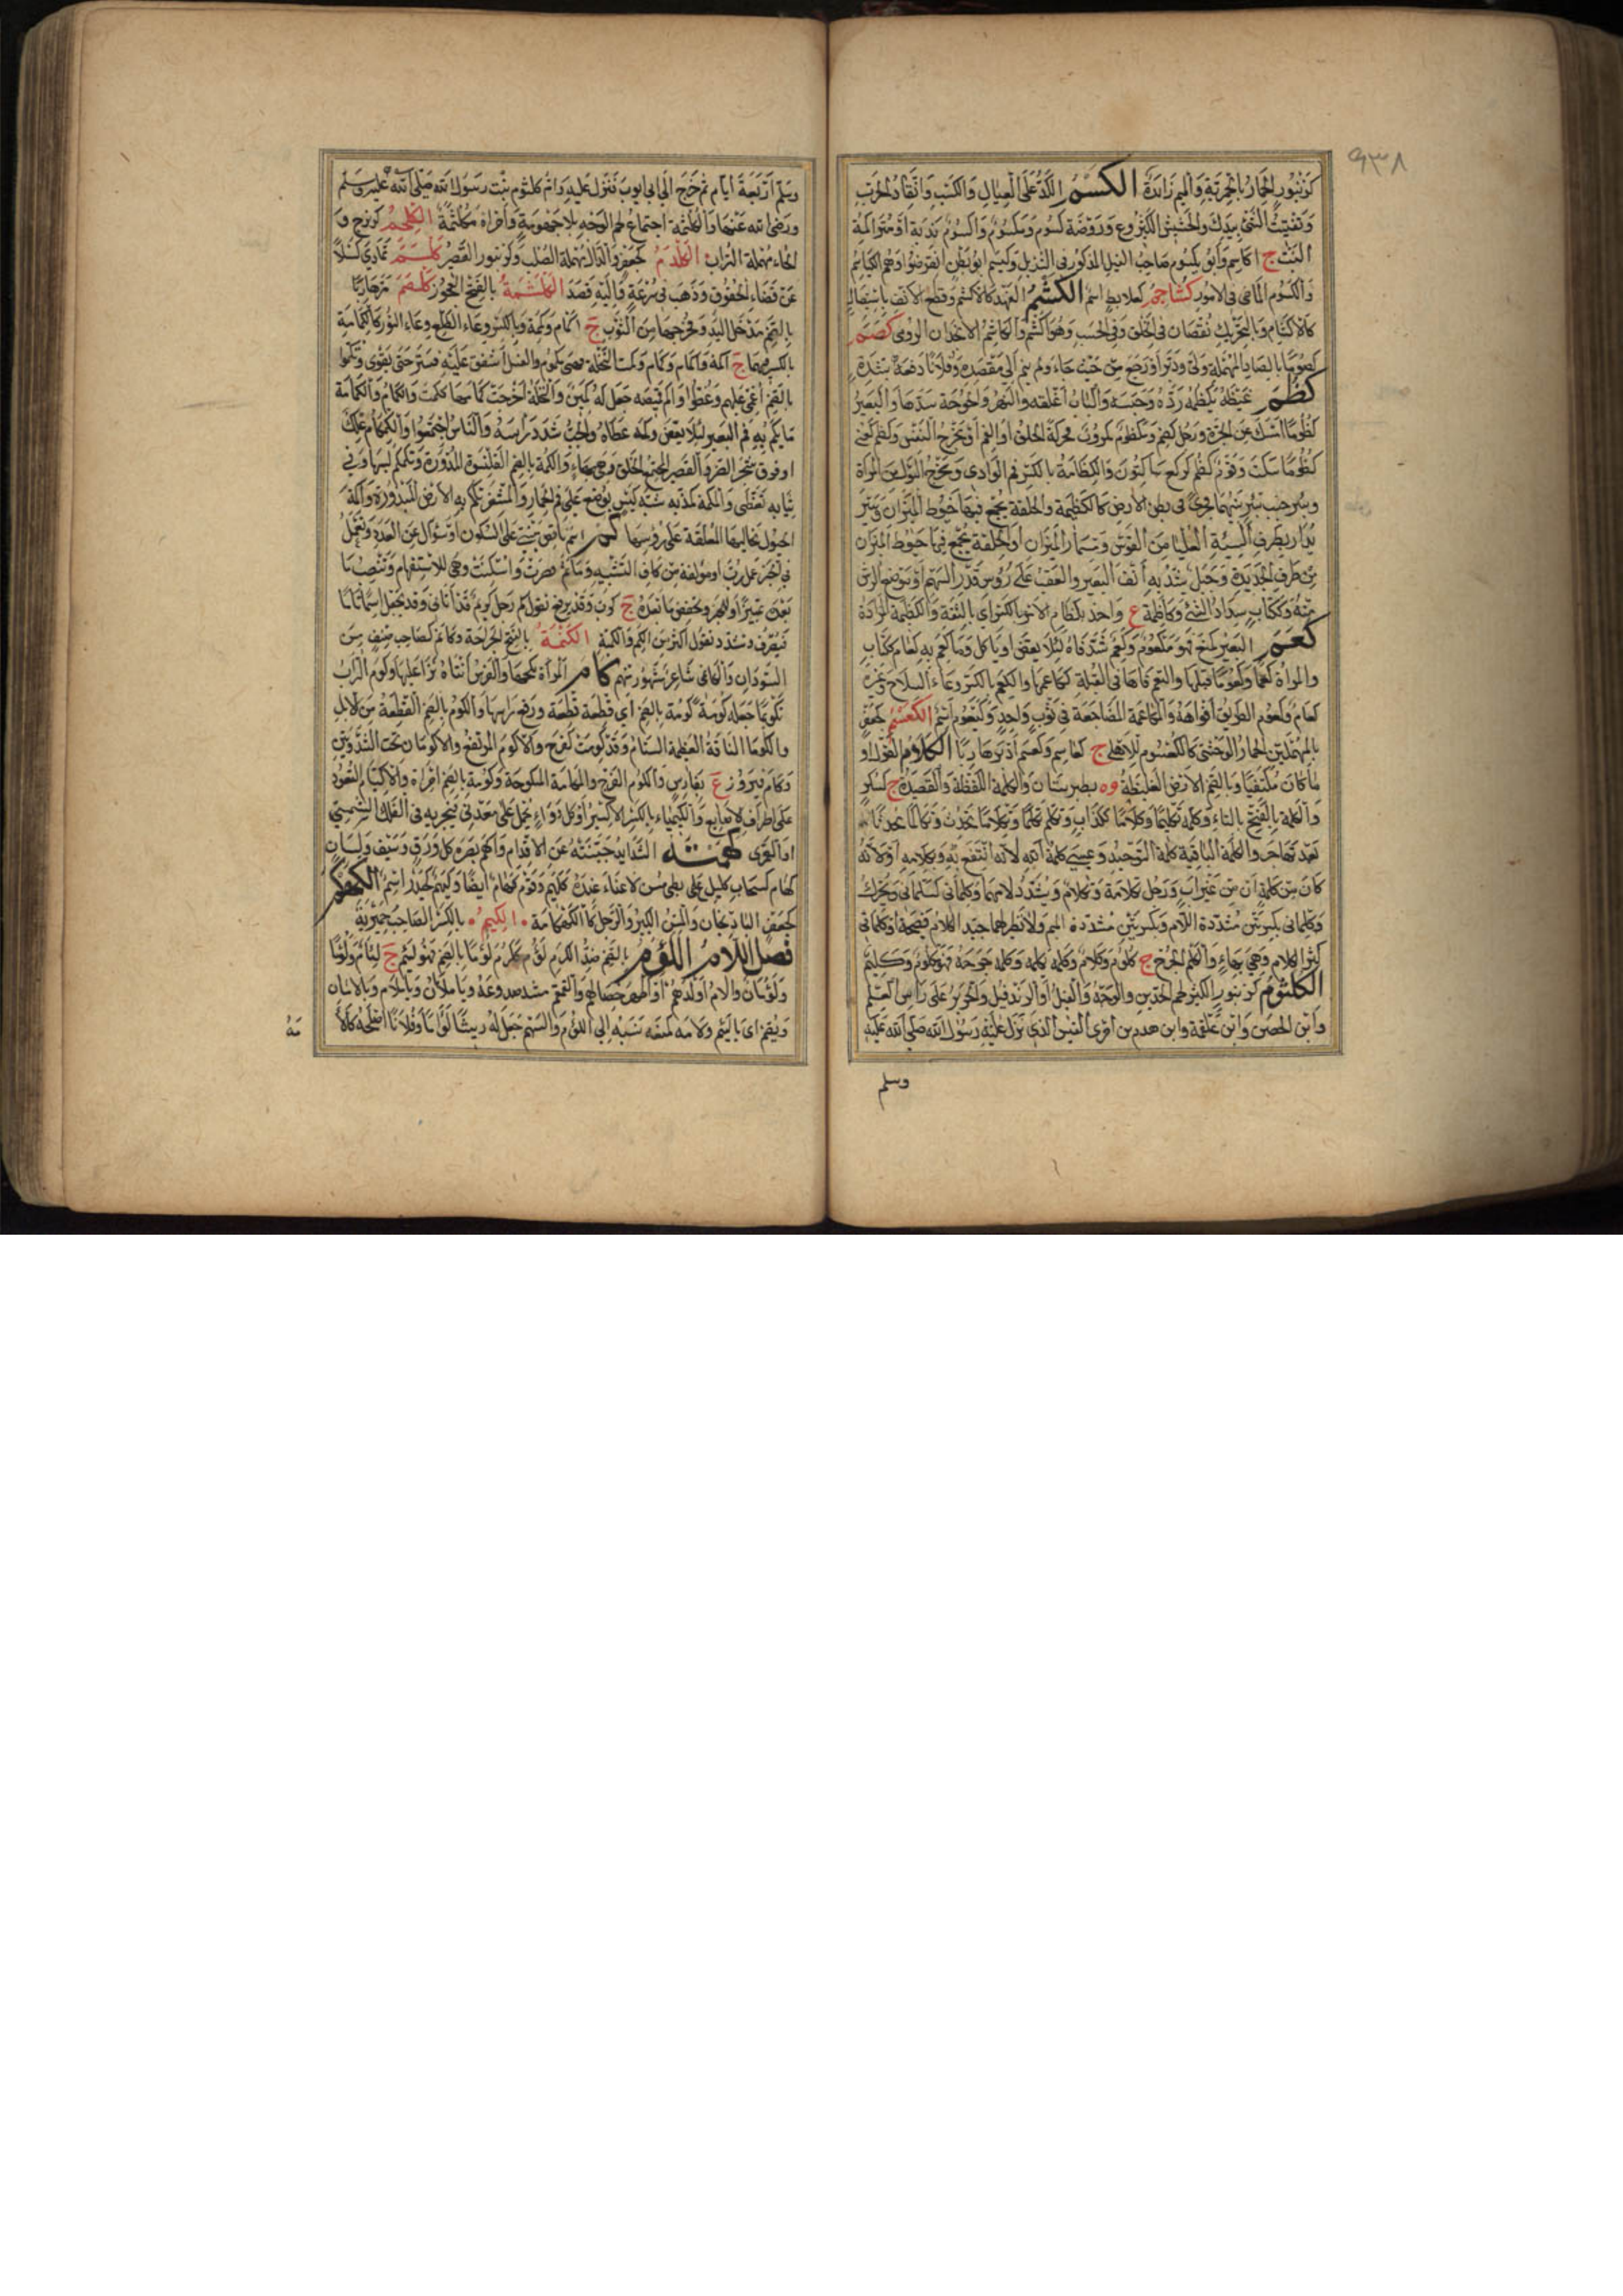 ٩٣٨
كزنبور الحمار بالحميرية والميم زائدة الكسم الكد على العيال والكسب وايقاد الحرب
وتفتيت الشئ بيدك والحشيش الكثير وع وروضة كسوم ويكسوم واكسوم ندية او متراكمة
النبت ج اكاسم وابو يكسوم صاحب الفيل المذكور في التنزيل وكيسم ابو بطن انقرضوا وهم الكياسم
والكسوم الماضى فى الامور كشاجم كعلابط اسم الكشم الفهد كالاكشم وقطع الانف باستيصال
كالاكتشام وبالتحريك نقصان فى الخلق وفى الحسب وهو اكشم والكاشم الانجذان الرومى كصم
كصوما بالصاد المهملة ولى ودبر او رجع من حيث جاء ولم يتم الى مقصده وفلانا دفعه بشدة
كظم غيظه يكظمه رده وحبسه والباب اغلقه والنهر والخوخة سدهما والبعير
كظوما امسك عن الجرة ورجل كظيم ومكظوم مكروب محركة الحلق او الفم او مخرج النفس وكظم كعنى
كظوما سكت وقوم كظم كركع ساكتون والكظامة بالكسر فم الوادى ومخرج البول من المراة
وبئر جنب بئر بينهما مجرى فى بطن الارض كالكظيمة والحلقة يجمع فيها خيوط الميزان وسير
يدار بطرف السية العليا من القوس ومسمار الميزان او الحلقة يجمع فيها خيوط الميزان
من طرف الحديدة وحبل يشد به انف البعير والعقب على رؤس قذذ السهم او موضع الريش
منه وككتاب سداد الشئ وكاظمة ع واخذ بكظام الامر بالكسر اى بالثقة والكظيمة المزادة
كعم البعير كمنع فهو مكعوم وكعيم شد فاه لئلا يعض او ياكل وما كعم به كعام ككتاب
والمراة كعما وكعوما قبلها والتقم فاها فى القبلة ككاعمها والكعم بالكسر وعاء السلاح وغيره
كعام وكعوم الطريق افواهه والمكاعمة المضاجعة فى ثوب واحد وكيعوم اسم الكعسم كجعفر
بالمهملتين الحمار الوحشى كالكعسوم للاهلى ج كعاسم وكعسم ادبر هاربا الكلام القول او
ما كان مكتفيا وبالضم الارض الغليظة وه بطبرستان والكلمة اللفظة والقصيدة ج ككلم
والكلمة بالفتح بالتاء وكلمه تكليما وكلاما ككذاب وتكلم تكلما وتكلاما تحدث وتكالما تحدثا
بعد تهاجر والكلمة الباقية كلمة التوحيد وعيسى كلمة الله لانه انتفع به وبكلامه او لانه
كان من كلمة كن من غير اب ورجل تكلامة وتكلام ويشدد لامهما وكلمانى كسلمانى ويحرك
وكلمانى بكسرتين مشددة اللام وبكسرتين مشددة الميم ولا نظير لهما جيد الكلام فصيحه او كلمانى
كثير الكلام وهى بهاء والكلم الجرح ج كلوم وكلام وكلمه يكلمه وكلمه جرحه فهو مكلوم وكليم
الكلثوم كزنبور الكثير لحم الخدين والوجه والفيل او الزندفيل والحرير على راس العلم
وابن الحصين وابن علقمة وابن هدم بن امرى القيس الذى نزل عليه رسول الله صلى الله عليه
وسلم
وسلم اربعة ايام ثم خرج الى ابى ايوب فنزل عليه وام كلثوم بنت رسول الله صلى الله عليه وسلم
ورضى الله عنها والكلثمة اجتماع لحم الوجه بلا جهومة وامراة مكلثمة الكلحم كزبرج و
الحاء مهملة التراب الكلدم كجعفر والدال مهملة الصلب وكزنبور القصير كلسم تمادى كسلا
عن قضاء الحقوق وذهب فى سرعة واليه قصد الكلشمة بالفتح العجوز كلصم فر هاربا
بالضم مدخل اليد ومخرجها من الثوب ج اكمام وكممة وبالكسر وعاء الطلع وغطاء النور كالكمامة
بالكسر فيهما ج اكمة واكمام وكمام وكمت النخلة فهى مكموم والفسيل اشفق عليه فستر حتى يقوى وتكموا
بالضم اغمى عليهم وغطوا واكم قميصه جعل له كمين والنخلة اخرجت كمامها ككممت والكمام والكمامة
ما يكم به فم البعير لئلا يعض وكمه غطاه والحب شدد راسه والناس اجتمعوا والكمكام علك
او قرف شجر الضرو والقصير المجتمع الخلق وهى بهاء والكمة بالضم القلنسوة المدورة وتكمكم لبسها وفى
ثيابه تغطى والمكمة كمذبة شبه كيس يوضع على فم الحمار والمشفر تكم به الارض المبذورة واكمة
الخيول مخاليها المعلقة على رؤسها كم اسم ناقص مبنى على السكون او سؤال عن العدد وتعمل
فى الخبر عمل رب او مؤلفة من كاف التشبيه وما ثم قصرت واسكنت وهى للاستفهام وتنصب ما
بعده تمييزا وللخبر وتخفض ما بعده ح كرب وقد يرفع تقول كم رجل كريم قد اتانى وقد تجعل اسما تاما
فيصرف ويشدد تقول اكثر من الكم والكمية الكنمة بالفتح الجراحة وكانم كصاحب صنف من
السودان والكانمى شاعر مشهور منهم كام المراة نكحها والفرس انثاه نزا عليها وكوم التراب
تكويما جعله كومة كومة بالضم اى قطعة قطعة ورفع راسها والكوم بالضم القطعة من الابل
والكوما الناقة العظيمة السنام وقد كومت كفرح والاكوم المرتفع والاكومان تحت الثندوتين
وكام فيروز ع بفارس والكوم الفرج والمكامة المنكوحة وكومة بالضم امراة والاكتيام القعود
على اطراف الاصابع والكيمياء بالكسر الاكسير او كل دواء يحمل على معدنى فيجريه فى الفلك الشمسى
او القمرى كهمته الشدايد جبنته عن الاقدام واكهم بصره كل ورق وسيف ولسان
كهام كسحاب كليل عيى بطى مسن لا غناء عنده ككهيم وقوم كهام ايضا وكهيم كحيدر اسم الكهكم
كجعفر الباذنجان والمسن الكبير والرجل كالكهكامة الكيم بالكسر الصاحب حميرية
فصل اللام اللؤم بالضم ضد الكرم لؤم ككرم لؤما بالضم فهو لئيم ج لئام ولؤما
ولؤمان والام اولدهم او اظهر خصالهم والقمقم سد صدوعه ويا ملامان ويا ملام ويا لامان
ويضم اى يا لئيم ولامه كمنعه نسبه الى اللؤم والسهم جعل له ريشا لؤاما وفلانا اصلحه كالا
مه